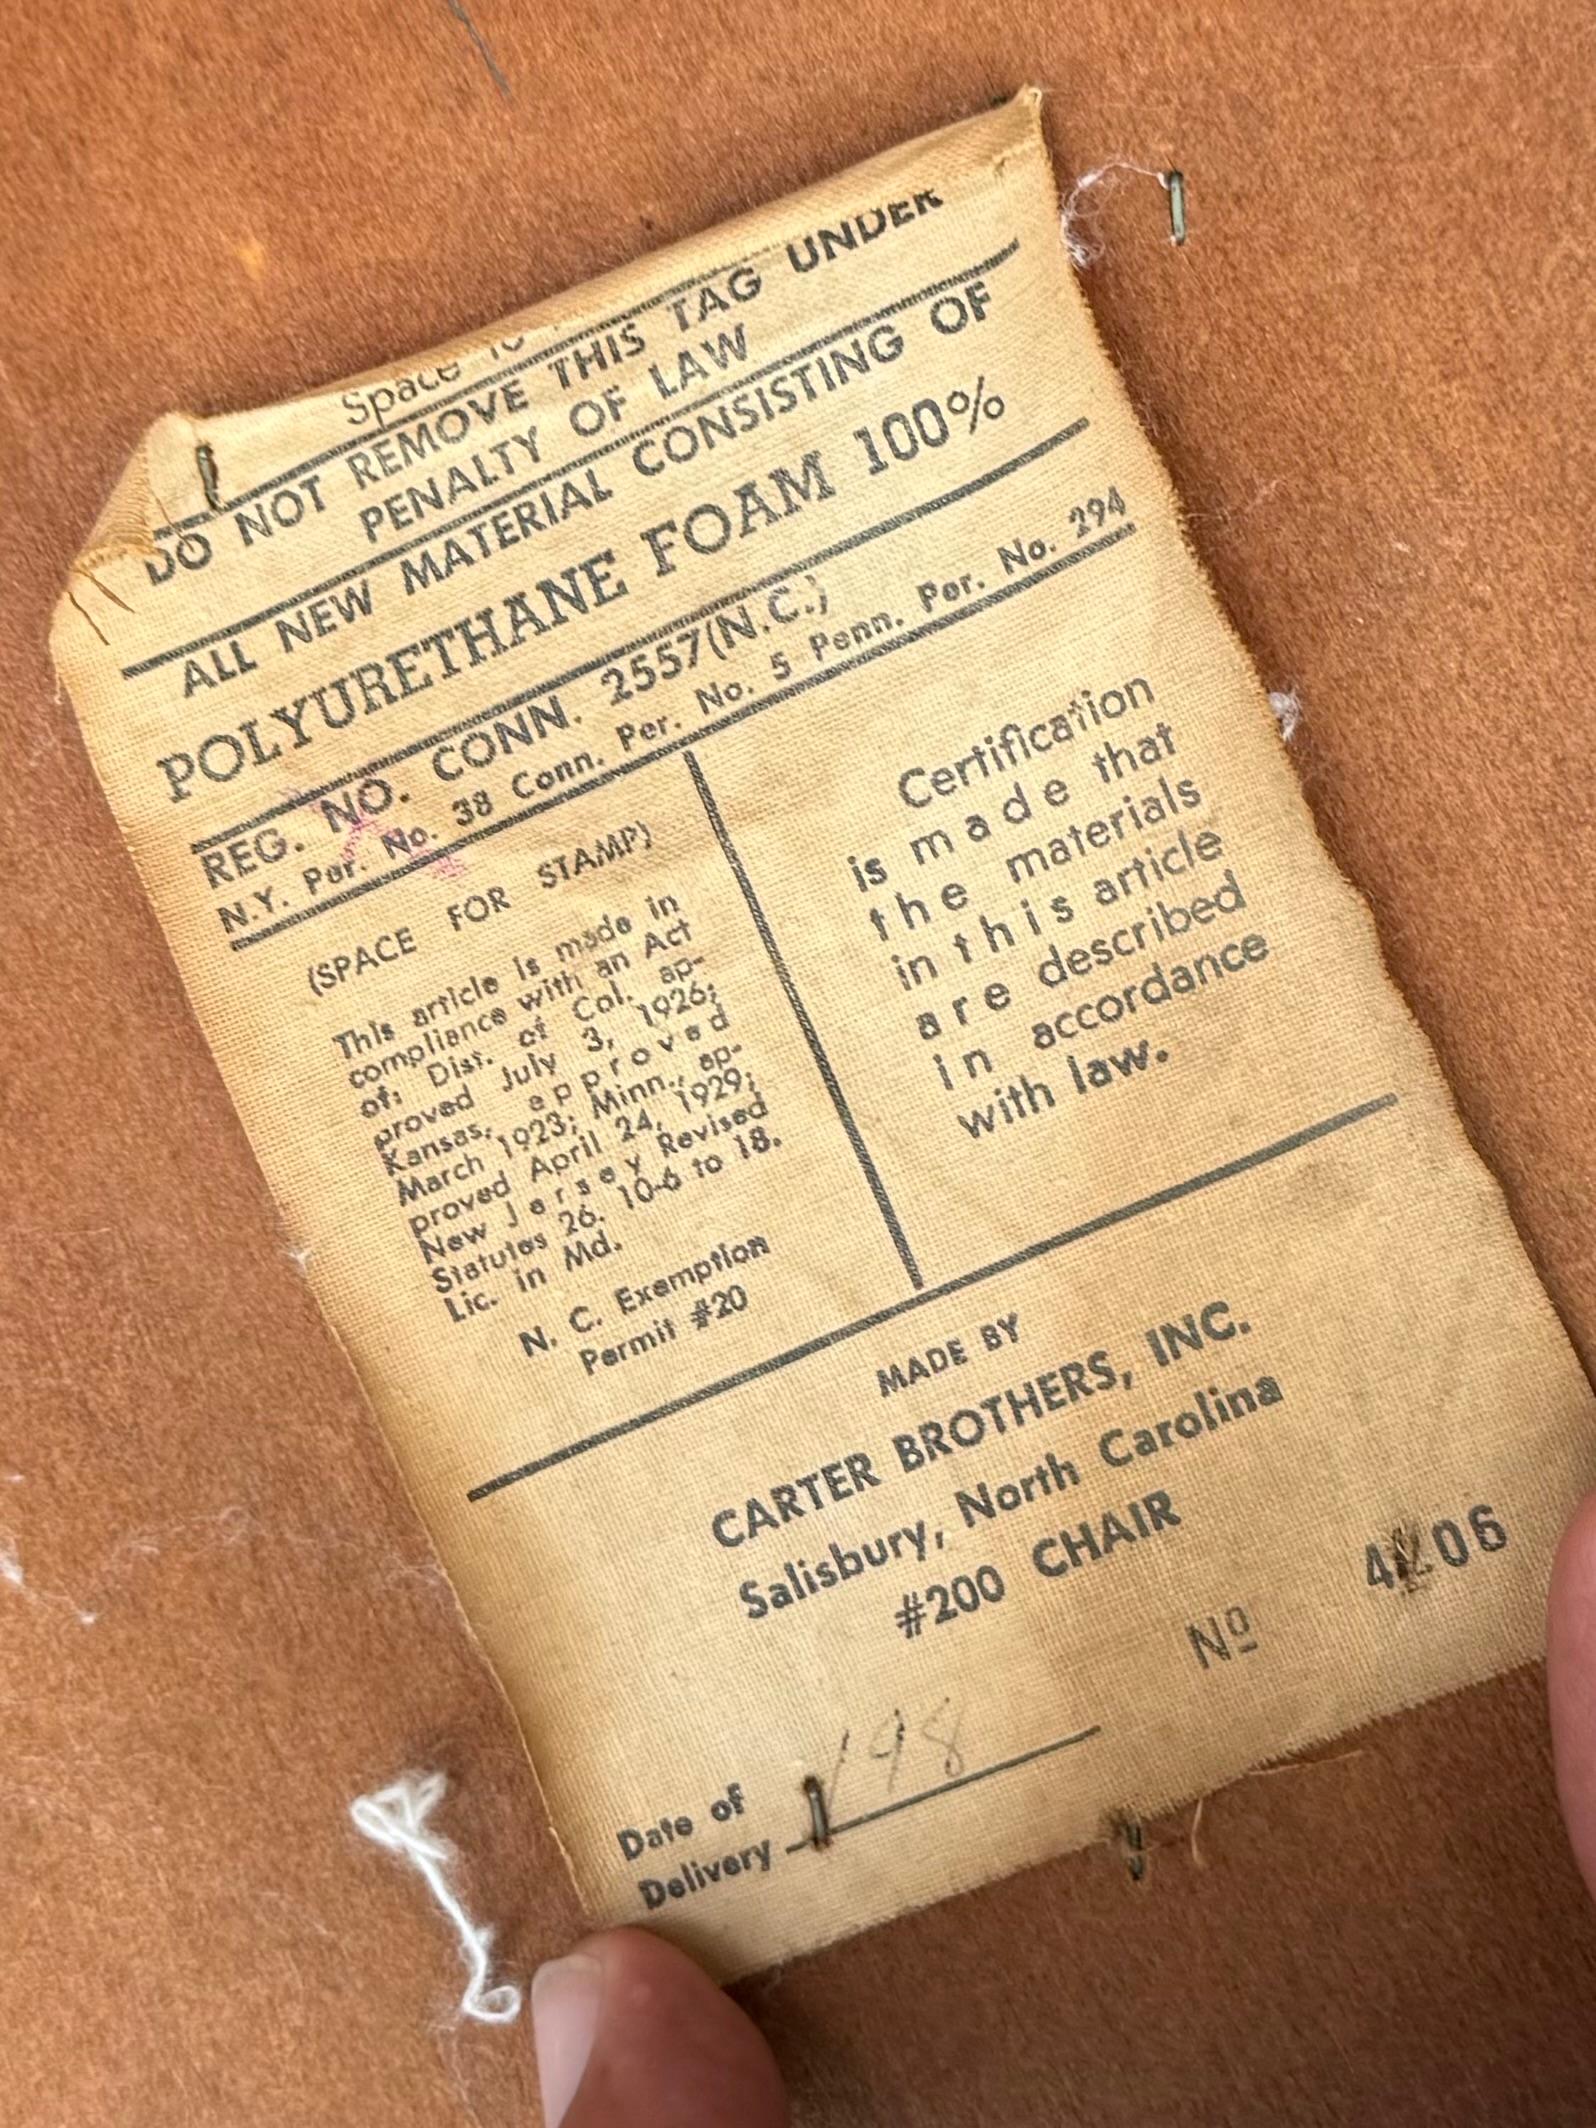 Space
DO NOT REMOVE THIS TAG UNDER
PENALTY OF LAW
ALL NEW MATERIAL CONSISTING OF
POLYURETHANE FOAM 100%
REG. NO. CONN. 2557(N.C.)
N.Y. Per. No. 38 Conn. Per. No. 5 Penn. Per. No. 294
(SPACE FOR STAMP)
This article is made in
compliance with an Act
of: Dist. of Col. ap-
proved July 3, 1926;
Kansas, approved
March 1923; Minn., ap-
proved April 24, 1929;
New Jersey Revised
Statutes 26. 10-6 to 18.
Lic. in Md.
N. C. Exemption
Permit #20
Certification
is made that
the materials
in this article
are described
in accordance
with law.
MADE BY
CARTER BROTHERS, INC.
Salisbury, North Carolina
#200 CHAIR
Nº
Date of
Delivery 198